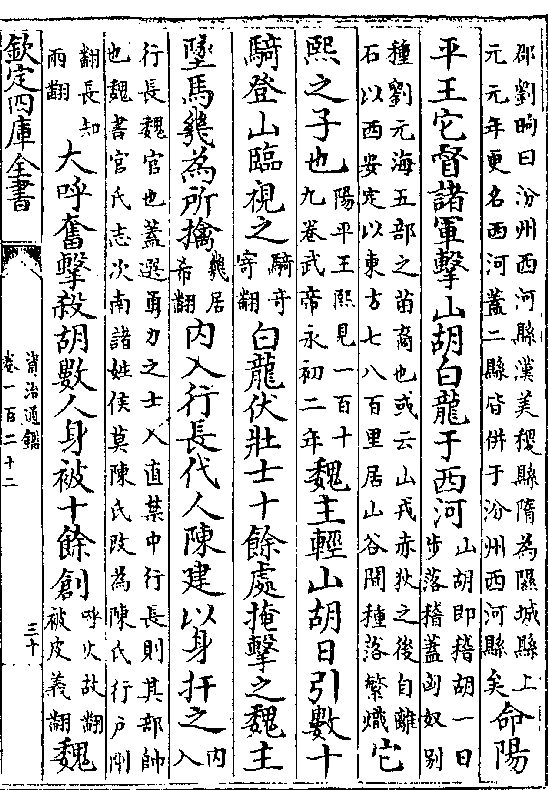 郡劉昫曰汾州西河縣漢美稷縣隋為隰城縣上
元元年更名西河蓋二縣皆併于汾州西河縣矣
命陽
平王它督諸軍擊山胡白龍于西河
山胡即稽胡一曰
步落稽蓋匈奴别
種劉元海五部之苗裔也或云山戎赤狄之後自離
石以西安定以東方七八百里居山谷間種落繁熾
它
熙之子也
陽平王熙見一百十
九卷武帝永初二年
魏主輕山胡日引數十
騎登山臨視之
騎奇
寄翻
白龍伏壯士十餘處掩擊之魏主
墜馬幾為所擒
幾居
希翻
内入行長代人陳建以身扞之
内
入
行長魏官也蓋選勇力之士入直禁中行長則其部帥
也魏書官氏志次南諸姓侯莫陳氏改為陳氏行戶剛
翻長知
兩翻
大呼奮擊殺胡數人身被十餘創
呼火故翻
被皮義翻
魏
欽定四庫全書
資治通鑑
卷一百二十二
三十